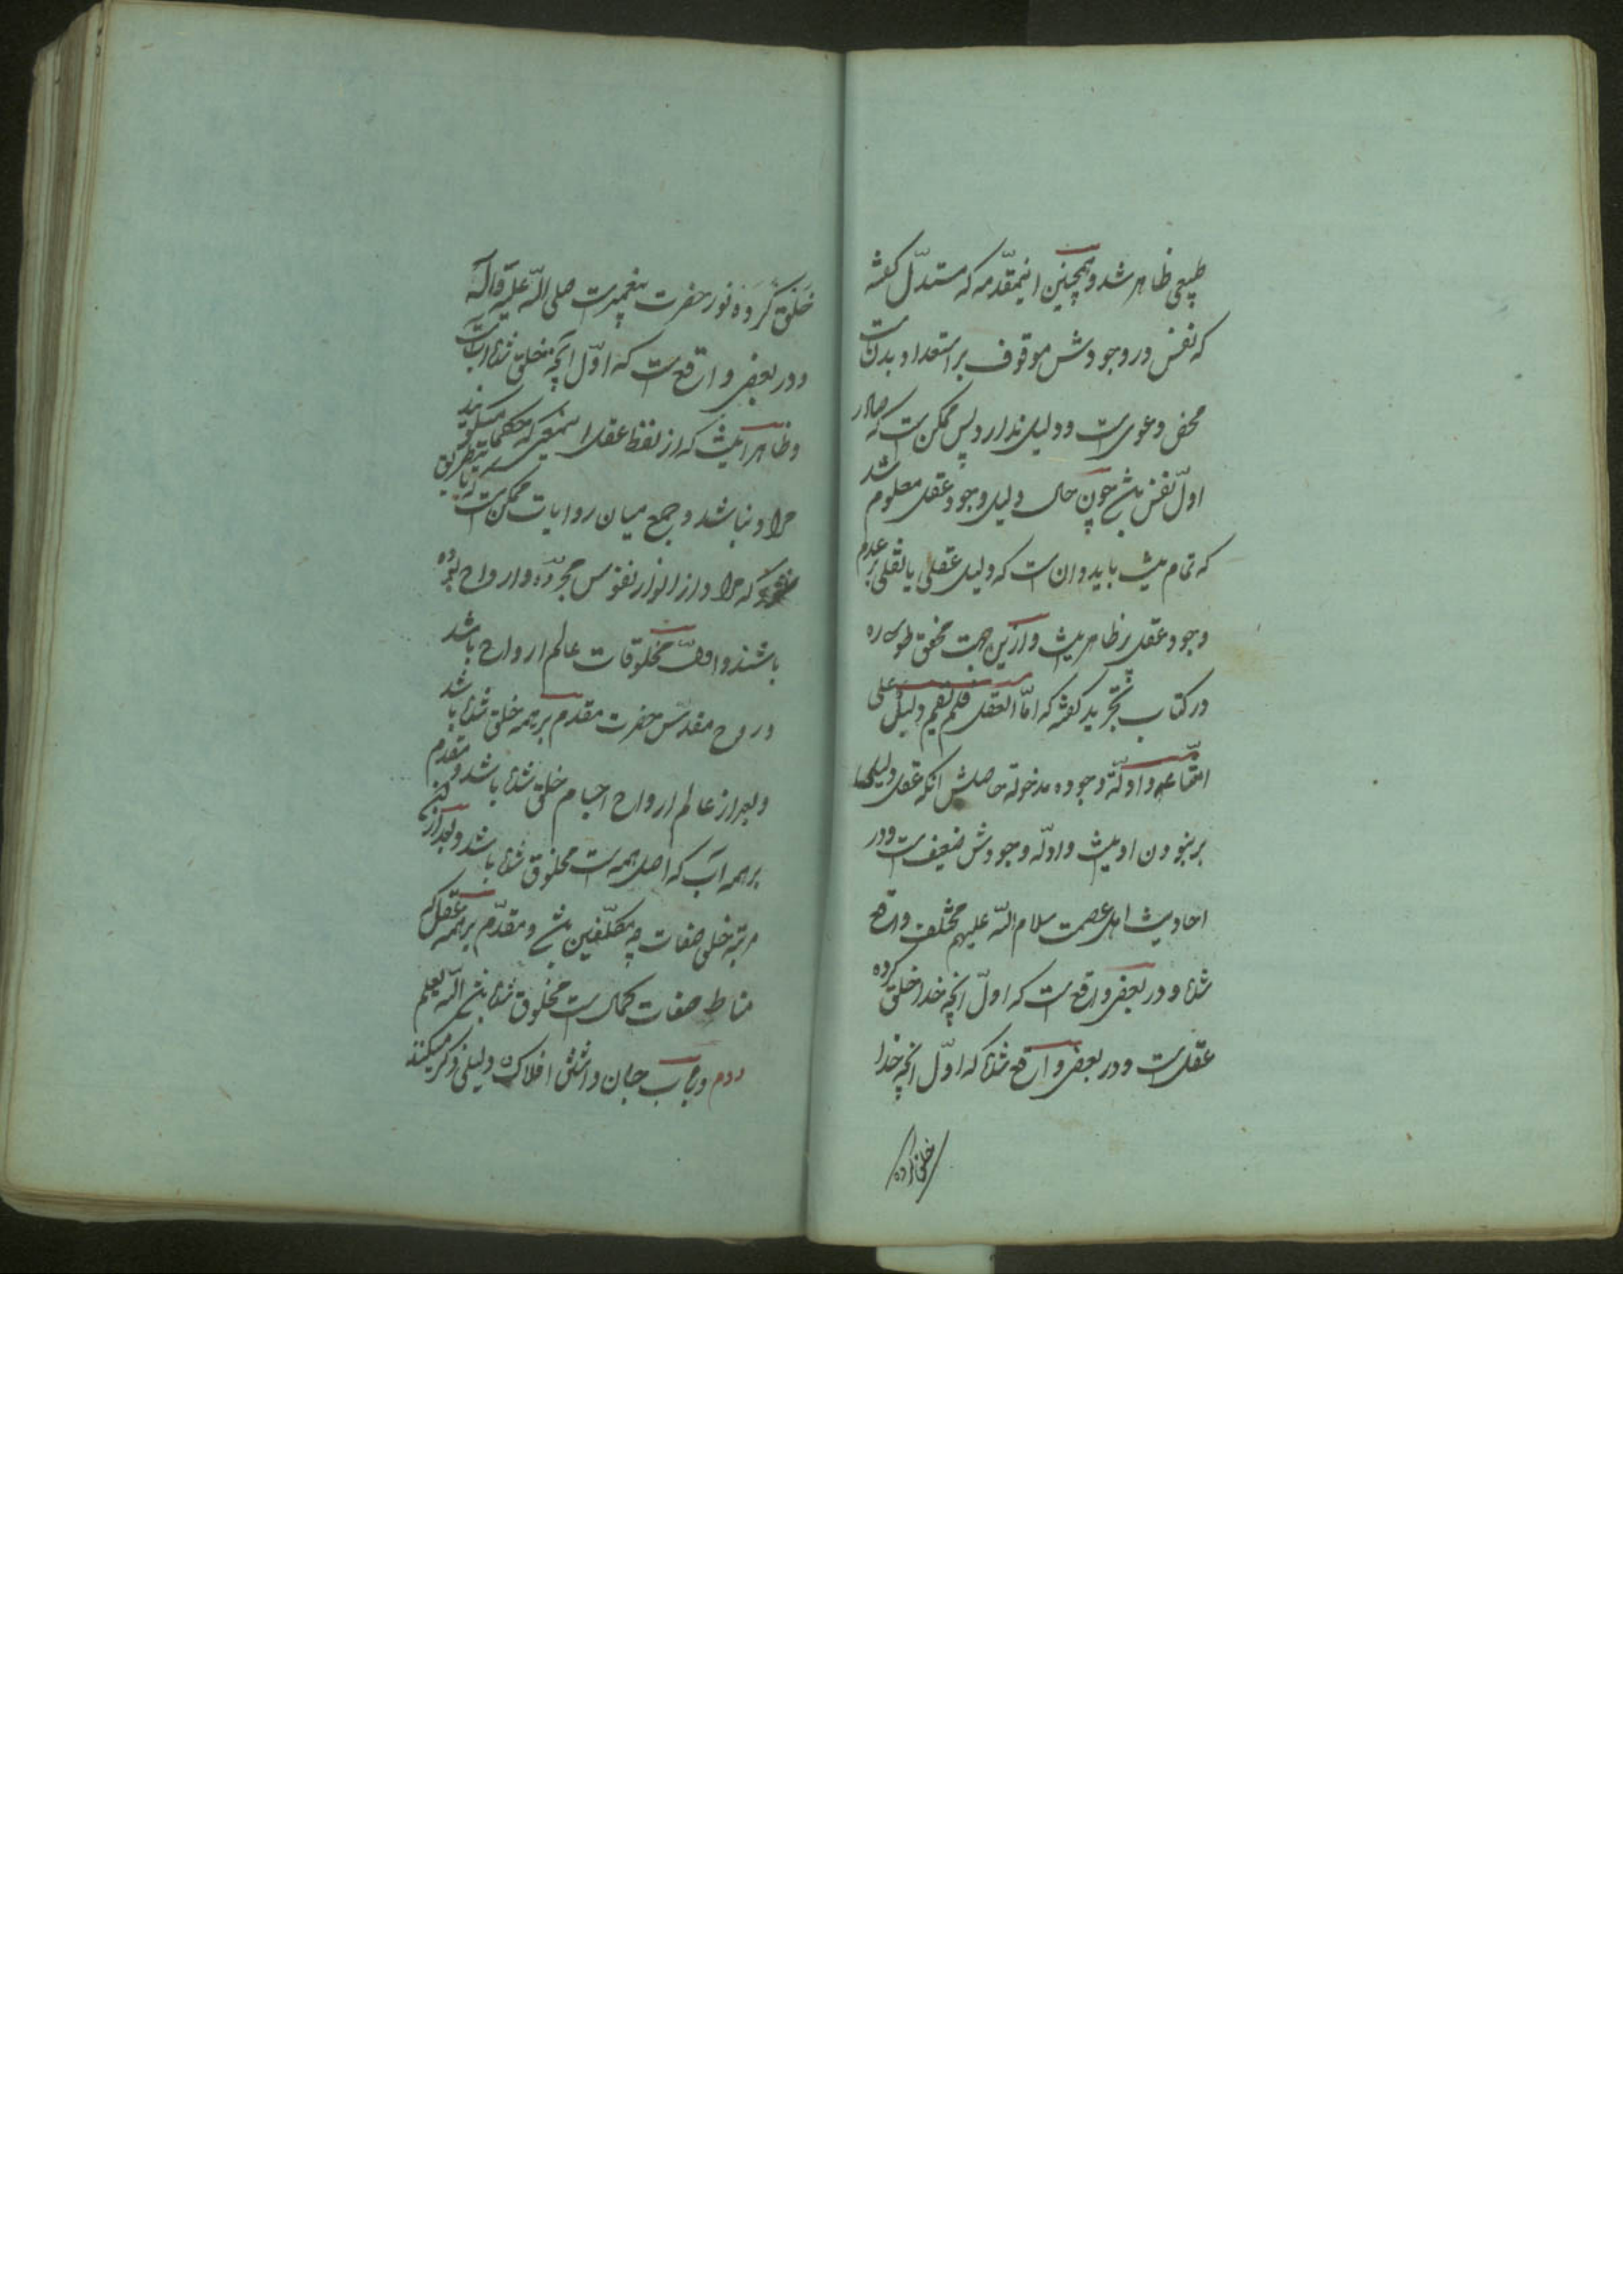 طبیعی ظاهر شد و همچنین اینمقدّمه که مستدلّ گفته
که نفس در وجودش موقوف بر استعداد بدنست
محض دعویست و دلیل ندارد پس ممکن است که صادر
اولّ نفس باشد چون حال دلیل وجود عقل معلوم شد
که تمام نیست باید دانست که دلیل عقلی یا نقلی بر عدم
وجود عقل نیز ظاهر نیست و ازین جهت محقق طوسی ره
در کتاب تجرید گفته که امّا العقل فلم یقم دلیل علی
امتناعه و ادلّة وجوده مدخولة حاصلش آنکه عقل دلیلی
بر نبودن او نیست و ادلّه وجودش ضعیفست و در
احادیث اهل عصمت سلام اللّه علیهم مختلف واقع
شده و در بعضی واقع است که اولّ آنچه خدا خلق کرده
عقل است و در بعضی واقع شده که اولّ آنچه خدا
خلق کرده
خلق کرده نور حضرت پیغمبرست صلی اللّه علیه وآله
و در بعضی واقع است که اوّل آنچه خلق شده آبست
و ظاهر آنست که از لفظ عقل اینمعنی که حکما میگویند
مراد نباشد و جمع میان روایات ممکن است باینطریق
که مراد از انوار نفوس مجرّده و ارواح بوده
باشند و اول مخلوقات عالم ارواح باشد
و روح مقدّس حضرت مقدم بر همه خلق شده باشد
و بعد از عالم ارواح اجسام خلق شده باشد و مقدم
بر همه آب که اصل همه است مخلوق شده باشد و بعد از این
مرتبه خلق صفات مکلّفین باشد و مقدّم بر همه عقل که
مناط صفات کمال است مخلوق شده باشد اللّه یعلم
دوم در باب جان داشتن افلاک دلیلی ذکر میکنند